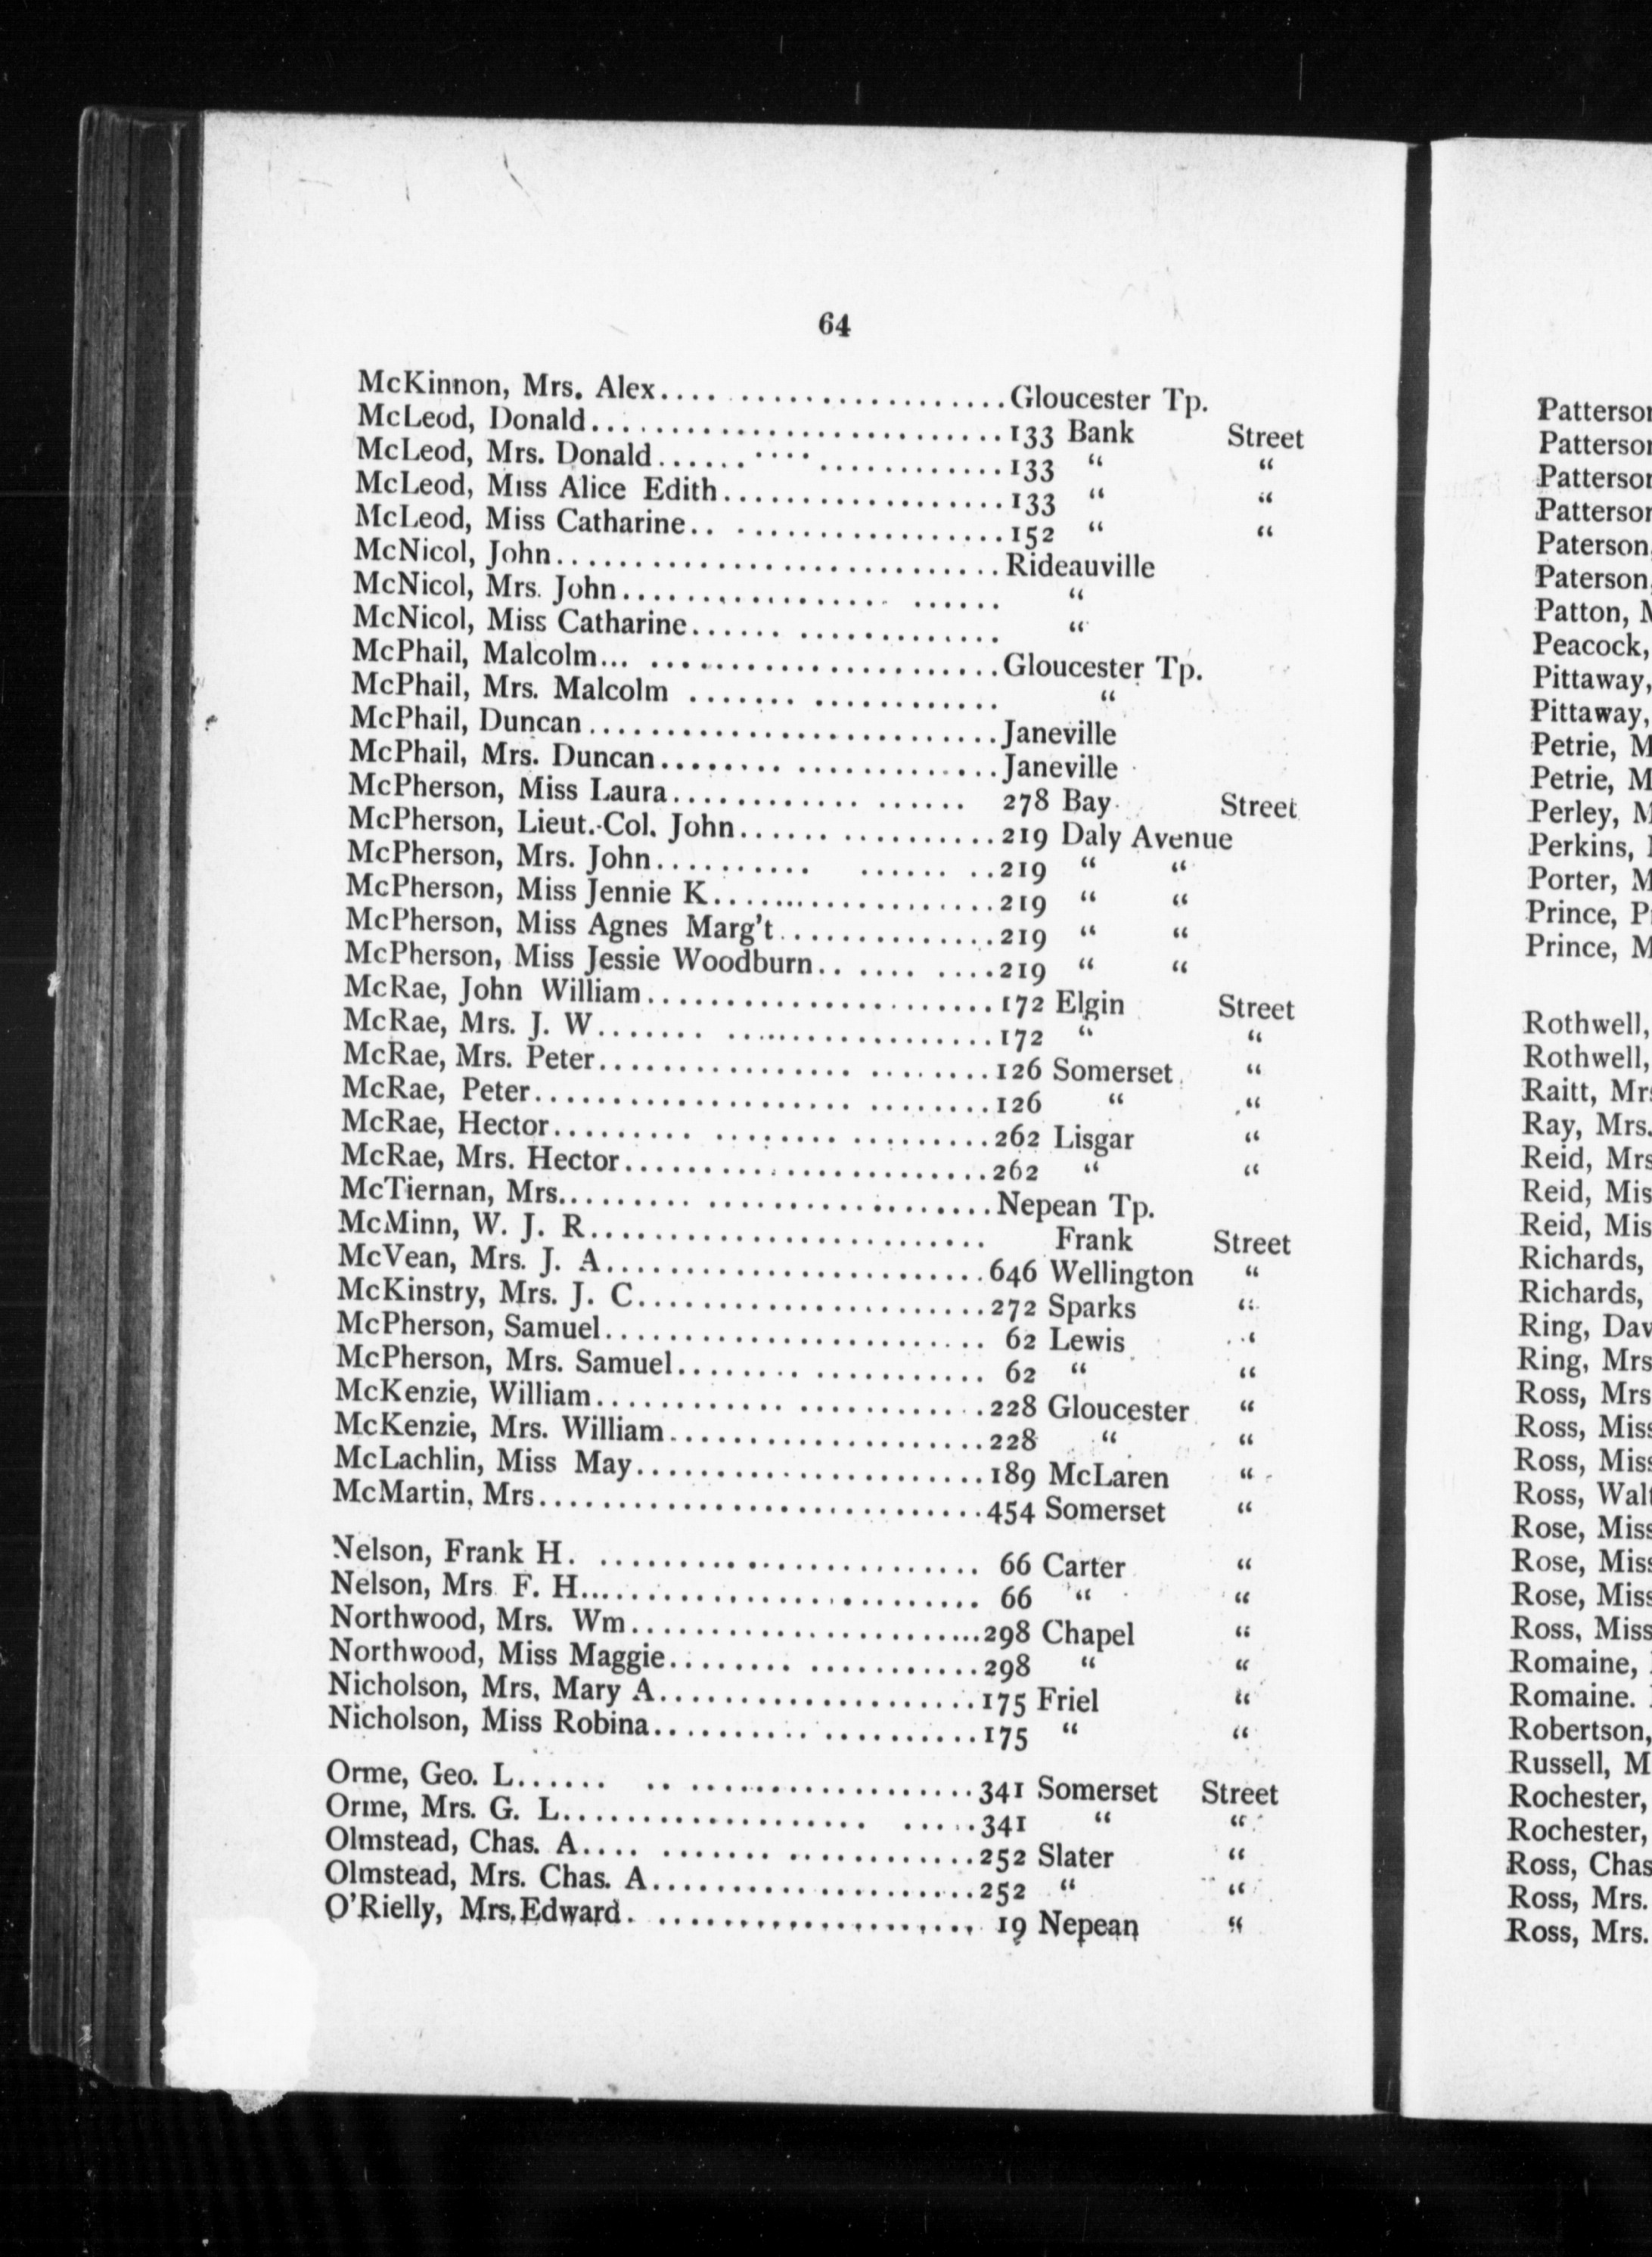 64
McKinnon, Mrs. Alex.... .....................Gloucester Tp.
McLeod, Donald............................133 Bank Street
McLeod, Mrs. Donald......................133 “ “
McLeod, Miss Alice Edith...................133 “ “
McLeod, Miss Catharine.. ..................152 “ “
McNicol, John..............................Rideauville
McNicol, Mrs. John................... ...... “
McNicol, Miss Catharine...... ............. “
McPhail, Malcolm... .......................Gloucester Tp.
McPhail, Mrs. Malcolm ....... ............ “
McPhail, Duncan...........................Janeville
McPhail, Mrs. Duncan........ .............Janeville
McPherson, Miss Laura............ ...... 278 Bay Street
McPherson, Lieut.-Col. John...... ..........219 Daly Avenue
McPherson, Mrs. John.......... ...... ..219 “ “
McPherson, Miss Jennie K...................219 “ “
McPherson, Miss Agnes Marg't...............219 “ “
McPherson, Miss Jessie Woodburn.. .... ....219 “ “
McRae, John William.......................172 Elgin Street
McRae, Mrs. J. W....... ..................172 “ “
McRae, Mrs. Peter................. ........126 Somerset “
McRae, Peter..................... ........126 “ “
McRae, Hector.......... ........ .........262 Lisgar “
McRae, Mrs. Hector........................262 “ “
McTiernan, Mrs......... ...................Nepean Tp.
McMinn, W. J. R.......................... Frank Street
McVean, Mrs. J. A.........................646 Wellington “
McKinstry, Mrs. J. C.......................272 Sparks “
McPherson, Samuel......................... 62 Lewis “
McPherson, Mrs. Samuel........ ........... 62 “ “
McKenzie, William............. ............228 Gloucester “
McKenzie, Mrs. William.....................228 “ “
McLachlin, Miss May.......................189 McLaren “
McMartin, Mrs.............................454 Somerset “
Nelson, Frank H. ......................... 66 Carter “
Nelson, Mrs F. H.......................... 66 “ “
Northwood, Mrs. Wm.......................298 Chapel “
Northwood, Miss Maggie........ ...........298 “ “
Nicholson, Mrs. Mary A.....................175 Friel “
Nicholson, Miss Robina.......... ..........175 “ “
Orme, Geo. L...... .. ...................341 Somerset Street
Orme, Mrs. G. L.................... .....341 “ “
Olmstead, Chas. A.... ....... ............252 Slater “
Olmstead, Mrs. Chas. A.....................252 “ “
O'Rielly, Mrs. Edward. ..................... 19 Nepean “
Patterson
Patterson
Patterson
Patterson
Paterson,
Paterson,
Patton, M
Peacock,
Pittaway,
Pittaway,
Petrie, M
Petrie, M
Perley, M
Perkins,
Porter, M
Prince, P
Prince, M
Rothwell,
Rothwell,
Raitt, Mrs
Ray, Mrs.
Reid, Mrs
Reid, Mis
Reid, Mis
Richards,
Richards,
Ring, Dav
Ring, Mrs
Ross, Mrs
Ross, Miss
Ross, Miss
Ross, Walt
Rose, Miss
Rose, Miss
Rose, Miss
Ross, Miss
Romaine,
Romaine.
Robertson,
Russell, M
Rochester,
Rochester,
Ross, Chas
Ross, Mrs.
Ross, Mrs.